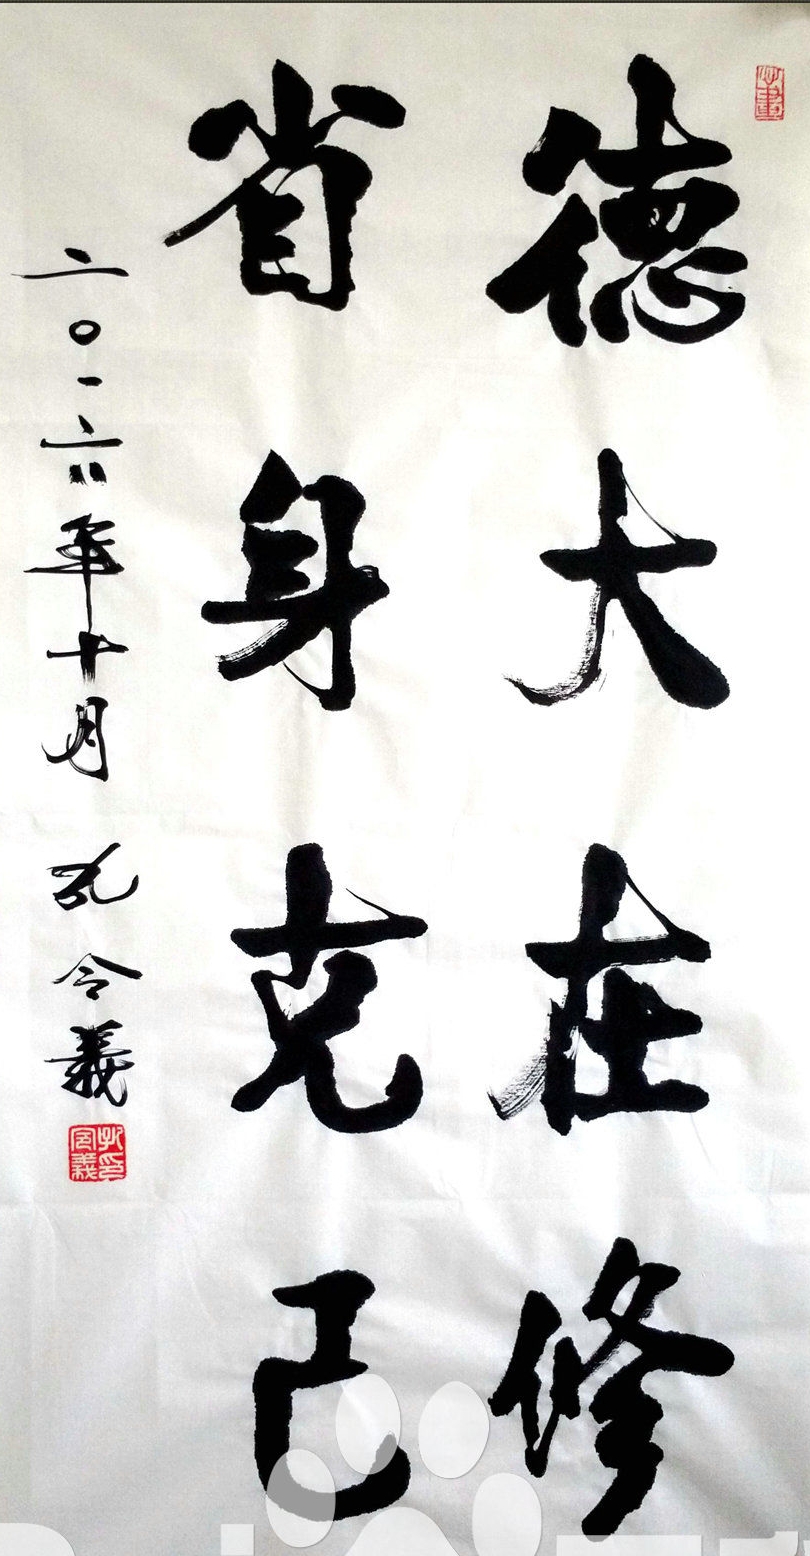 德大在修
省身克己
二〇一六年十月 孔令義